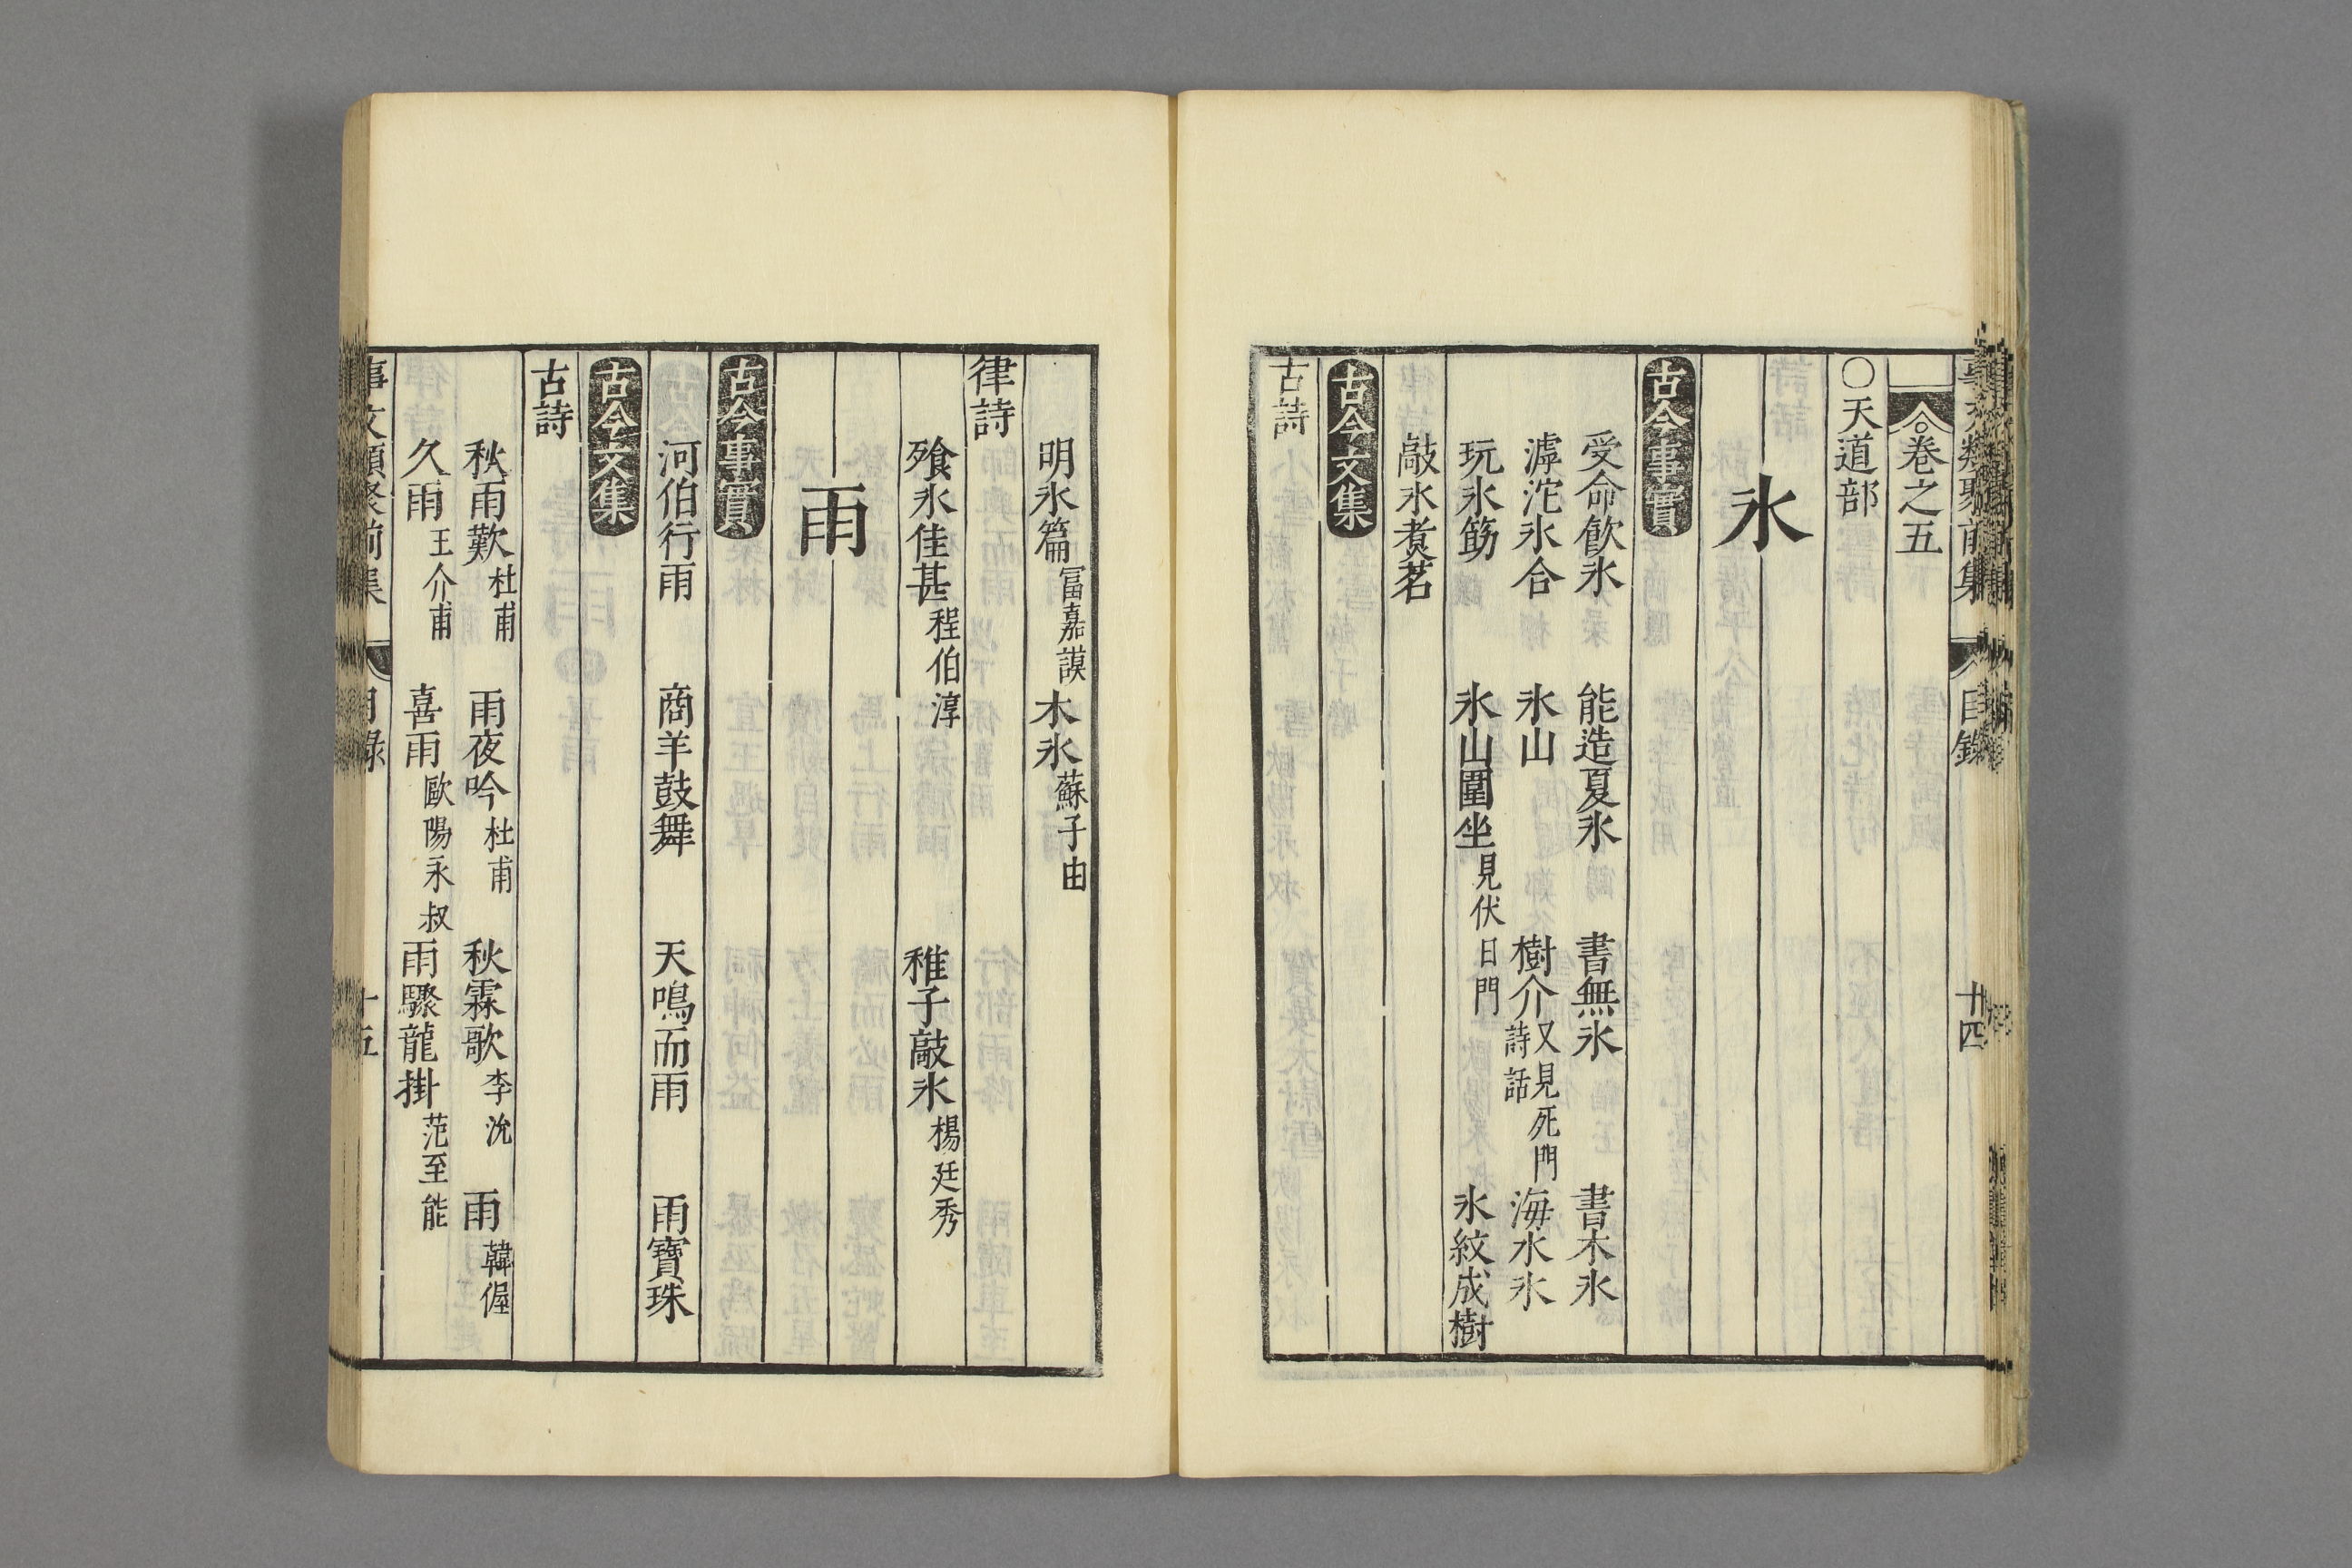 事文類聚前集 目錄 十四
卷之五
○天道部
氷
古今事實
受命飮氷 能造夏氷 書無氷 書木氷
滹沱氷合 氷山 樹介又見死門詩話 海水氷
玩氷筯 氷山圍坐見伏日門 氷紋成樹
敲氷煑茗
古今文集
古詩
明氷篇冨嘉謨 木氷蘇子由
律詩
飱氷佳甚程伯淳 稚子敲氷楊廷秀
雨
古今事實
河伯行雨 商羊鼓舞 天鳴而雨 雨寶珠
古今文集
古詩
秋雨歎杜甫 雨夜吟杜甫 秋霖歌李沇 雨韓偓
久雨王介甫 喜雨歐陽永叔 雨驟龍掛范至能
事文類聚前集 目錄 十五